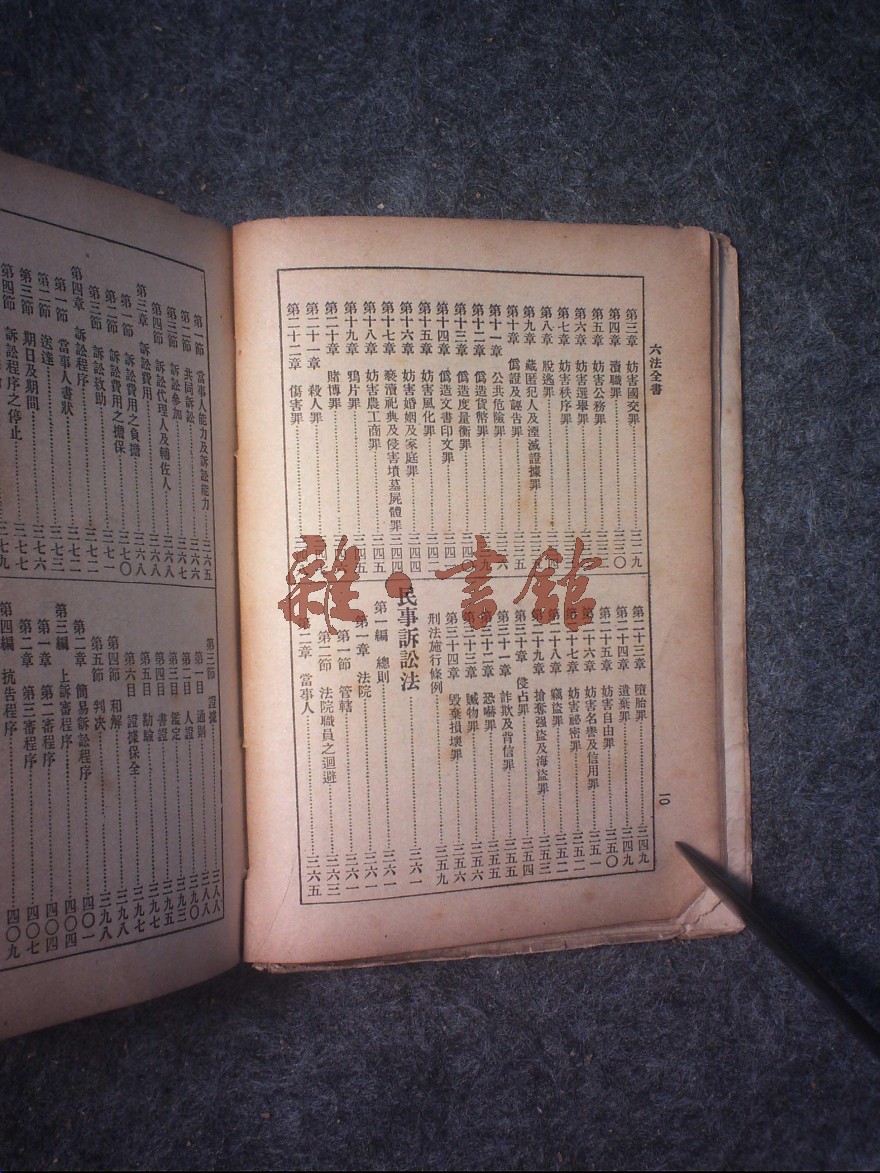 六法全書
第三章 妨害國交罪
第四章 瀆職罪 三三〇
第五章 妨害公務罪
第六章 妨害選舉罪
第七章 妨害秩序罪
第八章 脫逃罪
第九章 藏匿犯人及湮滅證據罪
第十章 僞證及誣告罪
第十一章 公共危險罪
第十二章 僞造貨幣罪
第十三章 僞造度量衡罪
第十四章 僞造文書印文罪
第十五章 妨害風化罪
第十六章 妨害婚姻及家庭罪
第十七章 褻瀆祀典及侵害墳墓屍體罪
第十八章 妨害農工商罪
第十九章 鴉片罪
第二十章 賭博罪
第二十一章 殺人罪
第二十二章 傷害罪
第二十三章 墮胎罪 三四九
第二十四章 遺棄罪 三四九
第二十五章 妨害自由罪 三五〇
第二十六章 妨害名譽及信用罪 三五一
第二十七章 妨害祕密罪 三五二
第二十八章 竊盜罪 三五二
第二十九章 搶奪强盜及海盜罪 三五三
第三十章 侵占罪 三五四
第三十一章 詐欺及背信罪 三五五
第三十二章 恐嚇罪 三五五
第三十三章 贓物罪 三五六
第三十四章 毀棄損壞罪 三五六
刑法施行條例 三五九
民事訴訟法 三六一
第一編 總則 三六一
第一章 法院 三六一
第一節 管轄 三六一
第二節 法院職員之迴避 三六三
第二章 當事人 三六五
一〇
雜·書館
第一節 當事人能力及訴訟能力 三六五
第二節 共同訴訟 三六六
第三節 訴訟參加 三六七
第四節 訴訟代理人及輔佐人 三六八
第三章 訴訟費用 三六八
第一節 訴訟費用之負擔
第二節 訴訟費用之擔保 三七〇
第三節 訴訟救助 三七一
第四章 訴訟程序 三七二
第一節 當事人書狀 三七三
第二節 送達 三七六
第三節 期日及期間 三七七
第四節 訴訟程序之停止 三七九
第三節 證據 三八八
第一目 通則 三八八
第二目 人證 三九〇
第三目 鑑定 三九三
第四目 書證 三九五
第五目 勘驗 三九七
第六目 證據保全 三九七
第四節 和解 三九八
第五節 判決 三九八
第二章 簡易訴訟程序 四〇一
第三編 上訴審程序 四〇四
第一章 第二審程序 四〇四
第二章 第三審程序 四〇七
第四編 抗告程序 四〇九